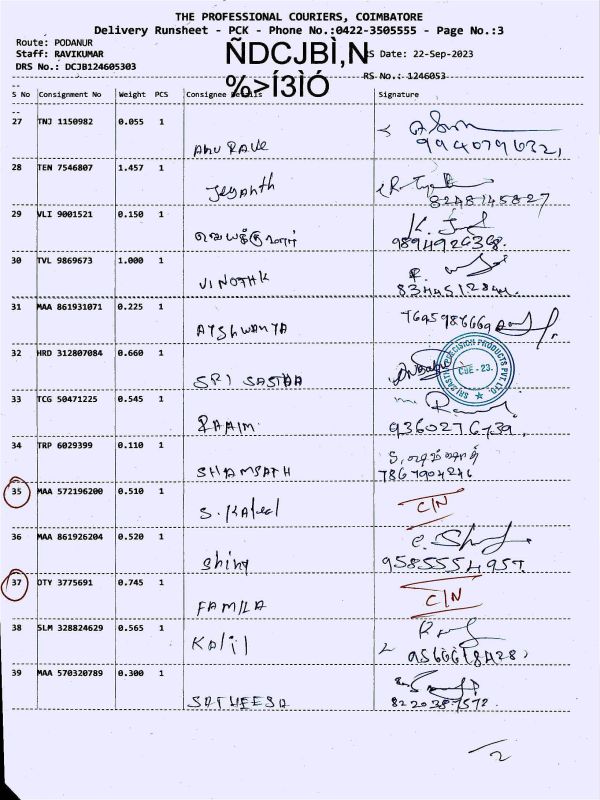 THE PROFESSIONAL COURIERS, COIMBATORE
Delivery Runsheet - PCK - Phone No.:0422-3505555 - Page No.:3
Route: PODANUR
Staff: RAVIKUMAR ÑDCJBÌ,N S Date: 22-Sep-2023
DRS No.: DCJB124605303 %>Í3ÌÓ RS No.: 1246053
S No Consignment No Weight PCS Consignee Details Signature
27 TNJ 1150982 0.055 1
ANU RAVE 9940796321
28 TEN 7546807 1.457 1
Jeyanth 8248145827
29 VLI 9001521 0.150 1
9894926368.
30 TVL 9869673 1.000 1
VINOTH K 8344512844
31 MAA 861931071 0.225 1
AISHWARYA 7695986669
32 HRD 312807084 0.660 1
SRI SASTHA CBE - 23. PRECISION PRODUCTS PVT LTD.
33 TCG 50471225 0.545 1
RAHIM 9360276739
34 TRP 6029399 0.110 1
SHAMSATH 7867904246
35 MAA 572196200 0.510 1
S. Kaleel C/N
36 MAA 861926204 0.520 1
Shiny 9585554957
37 OTY 3775691 0.745 1
FAMILA C/N
38 SLM 328824629 0.565 1
Kalil 9566678428
39 MAA 570320789 0.300 1
SATHEESH 8220387572
2